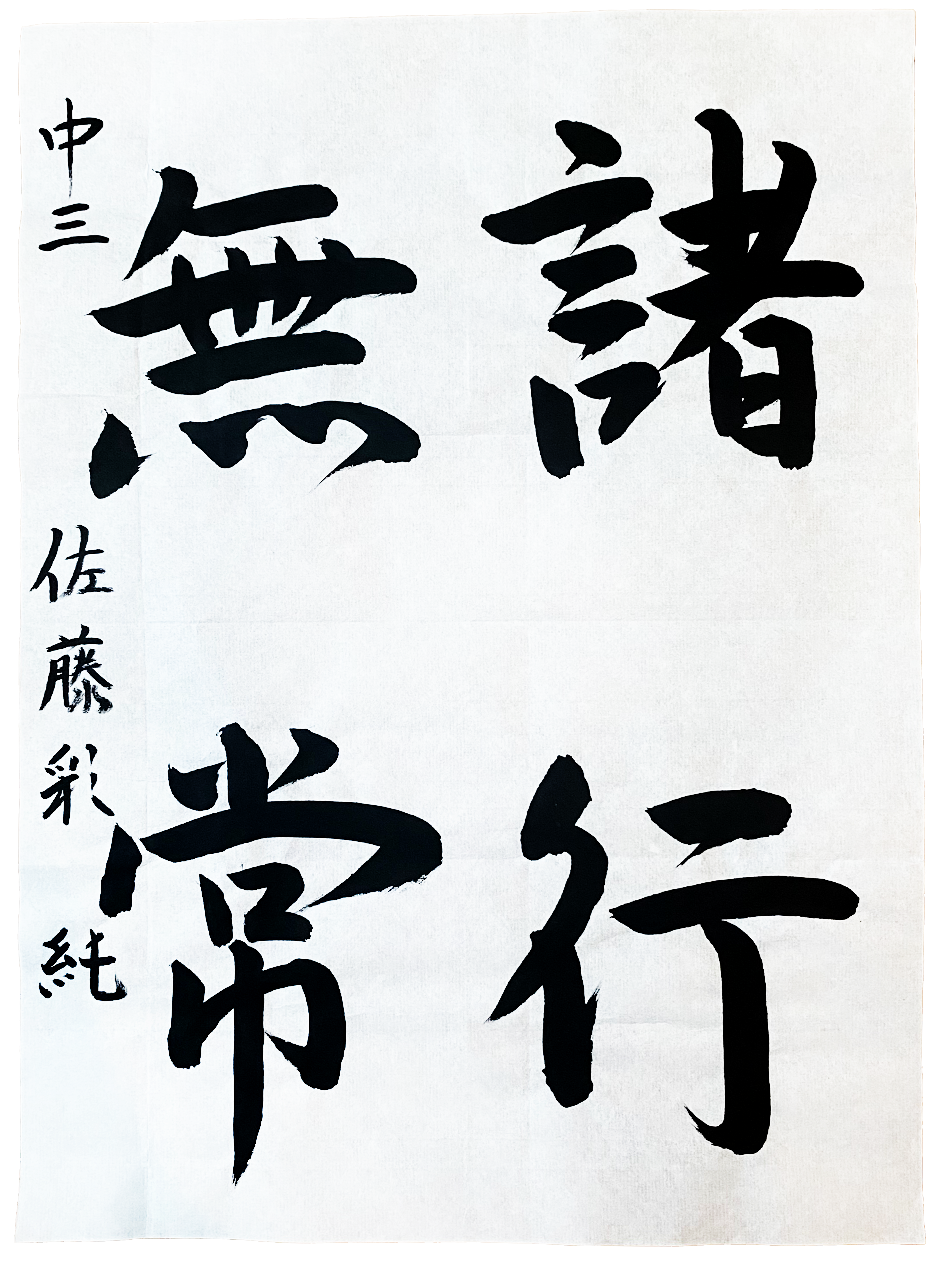 諸行
無常
中三 佐藤彩純